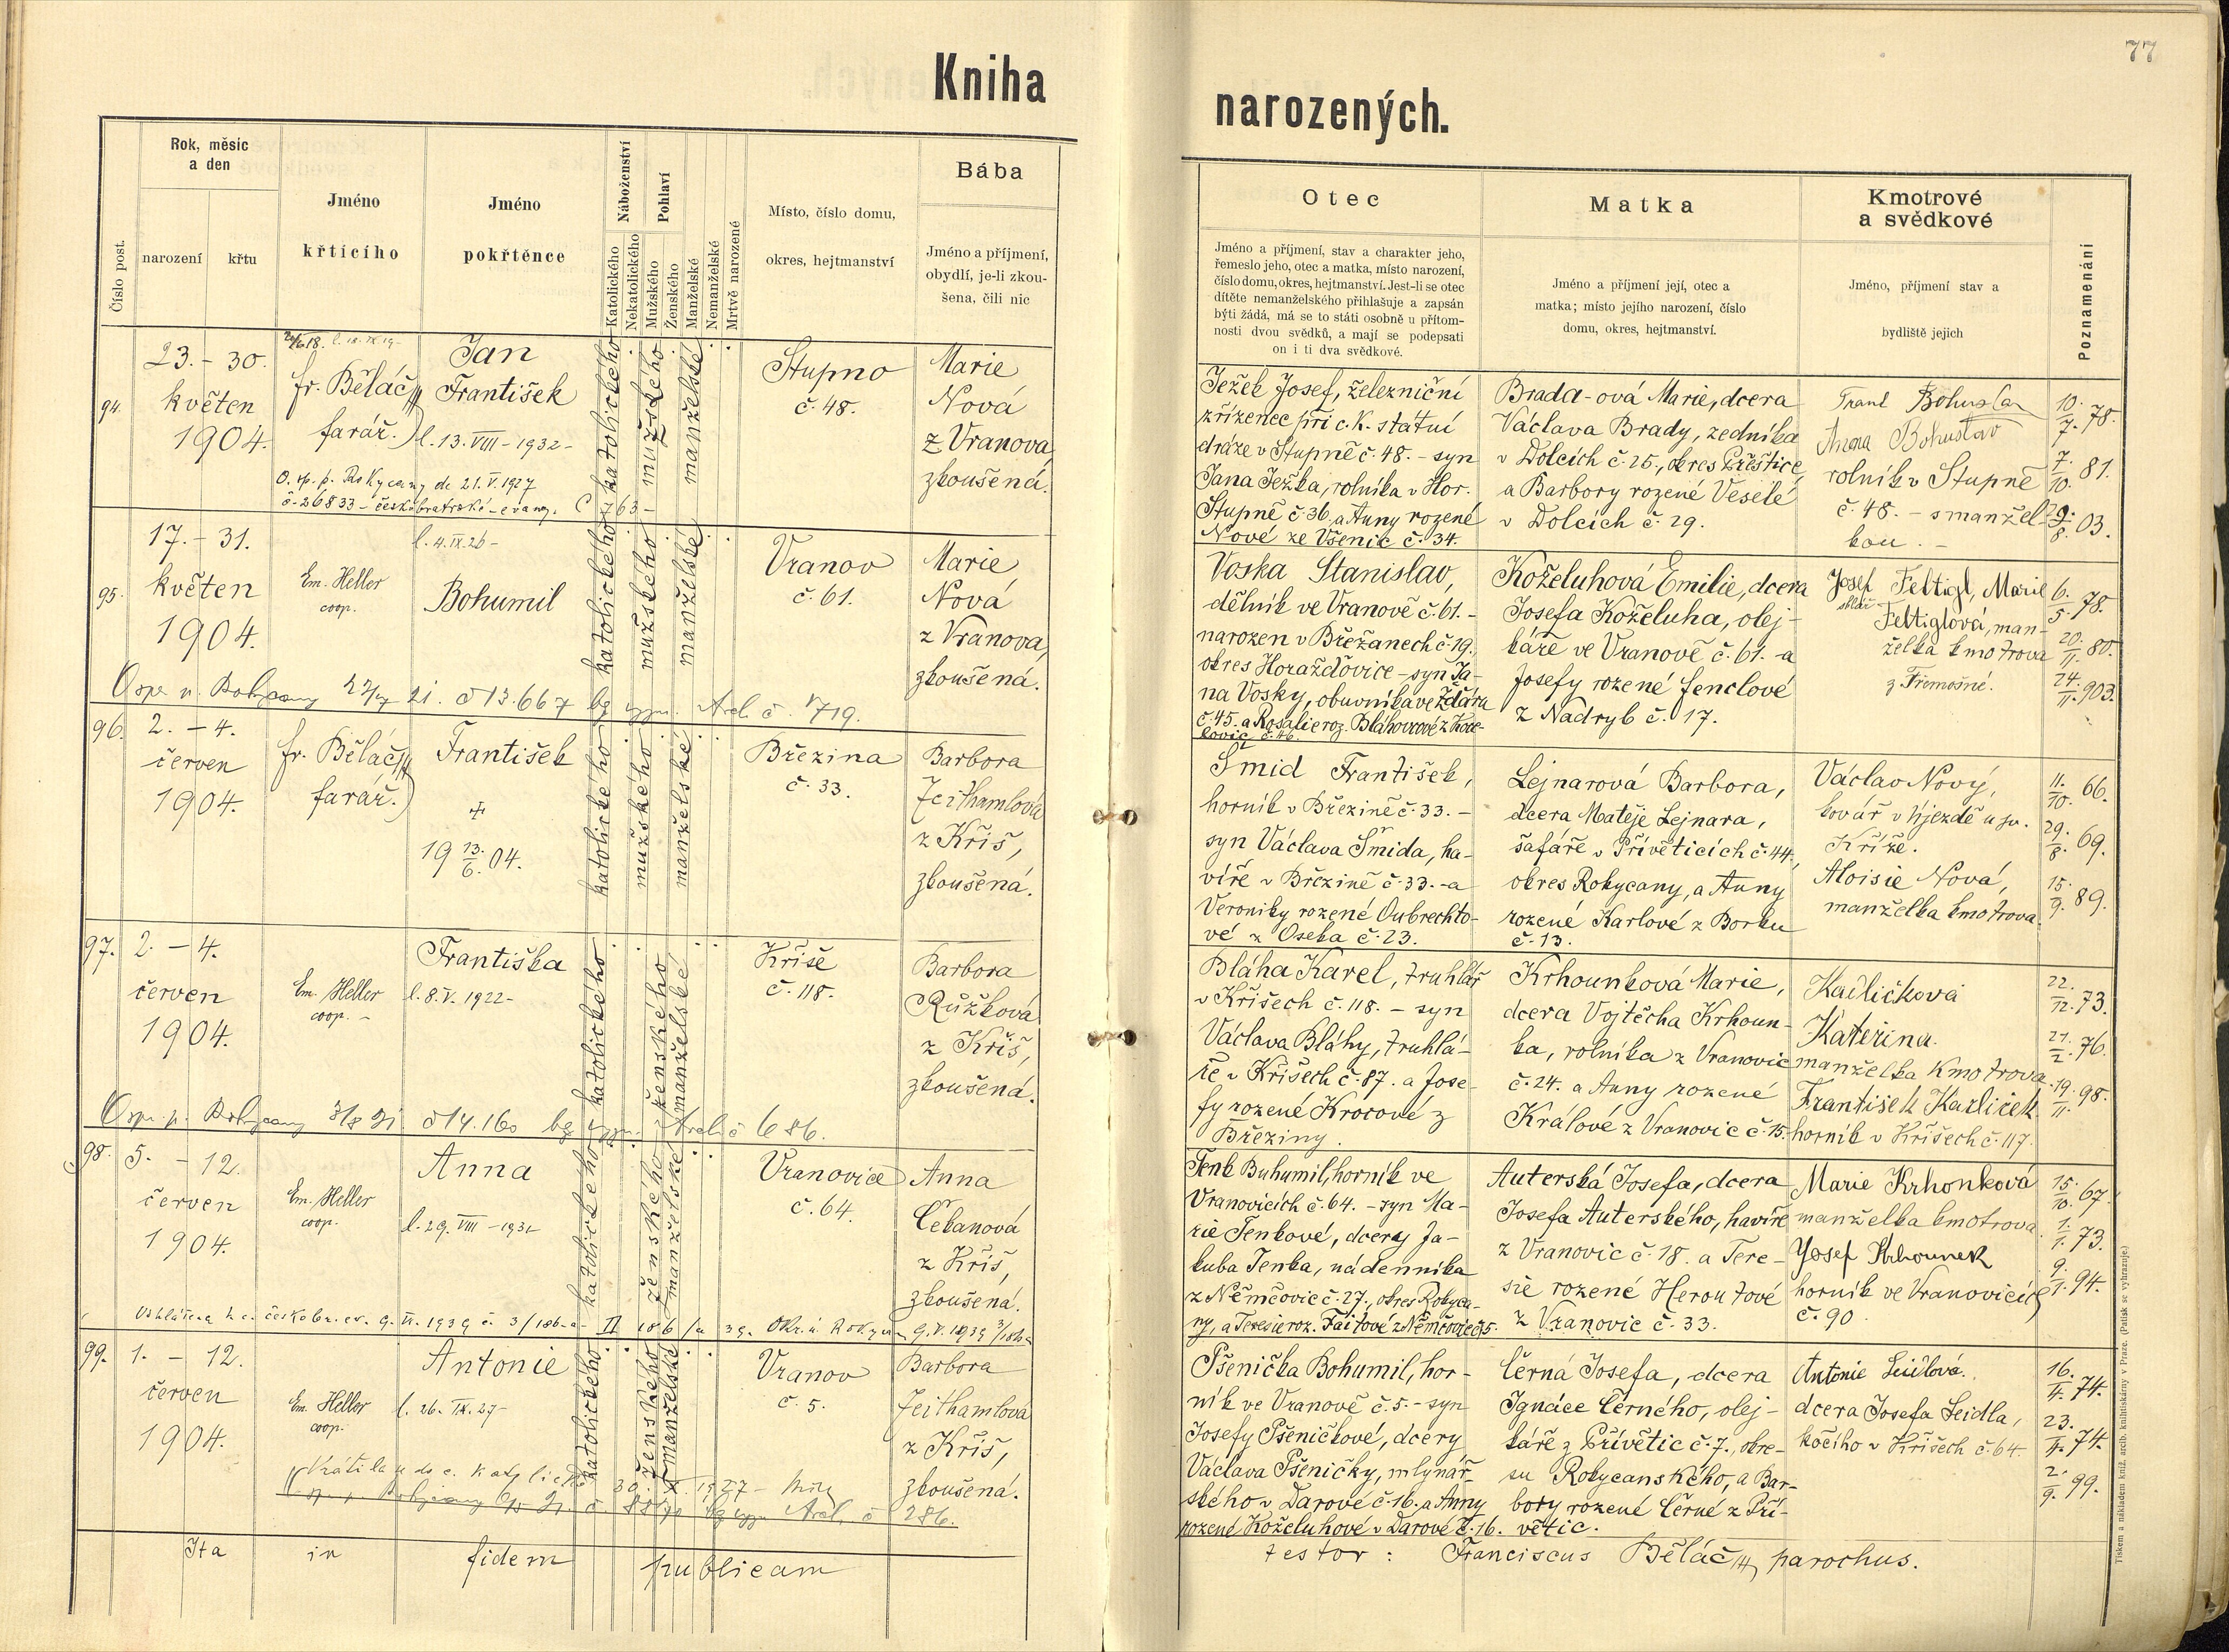 77
Kniha
narozených.
Číslo post.
Rok, měsíc
a den
narození
křtu
Jméno
křtícího
Jméno
pokřtěnce
Náboženství
Katolického
Nekatolického
Pohlaví
Mužského
Ženského
Manželské
Nemanželské
Mrtvě narozené
Místo, číslo domu,
okres, hejtmanství
Bába
Jméno a příjmení,
obydlí, je-li zkou-
šena, čili nic
Otec
Jméno a příjmení, stav a charakter jeho,
řemeslo jeho, otec a matka, místo narození,
číslo domu, okres, hejtmanství. Jest-li se otec
dítěte nemanželského přihlašuje a zapsán
býti žádá, má se to státi osobně u přítom-
nosti dvou svědků, a mají se podepsati
on i ti dva svědkové.
Matka
Jméno a příjmení její, otec a
matka; místo jejího narození, číslo
domu, okres, hejtmanství.
Kmotrové
a svědkové
Jméno, příjmení stav a
bydliště jejich
Poznamenání
94.
23. – 30.
květen
1904.
fr. Běláč
farář.
Jan
František
l. 13. VIII – 1932 –
21. V. 1927
č. 26833 – českobratrské – evang. C 763 –
katolického
mužského
manželské
Stupno
č. 48.
Marie
Nová
z Vranova,
zkoušená.
Ježek Josef, železniční
zřízenec při c. k. státní
dráze v Stupně č. 48. – syn
Jana Ježka, rolníka v Hor.
Stupně č. 36, a Anny rozené
Nové ze Všenic č. 34.
Brada-ová Marie, dcera
Václava Brady, zedníka
v Dolcích č. 25., okres Přeštice,
a Barbory rozené Veselé
v Dolcích č. 29.
Frant Bohuslav
Anna Bohuslav
rolník v Stupně
č. 48. – s manžel-
kou. –
10./7. 78.
7./10. 81.
29./8. 03.
95.
17. – 31.
květen
1904.
Em. Heller
coop.
l. 4. IX. 26 –
Bohumil
katolického
mužského
manželské
Vranov
č. 61.
Marie
Nová
z Vranova,
zkoušená.
Rokycany 21. č 13.667 Arch. č. 719.
Voska Stanislav,
dělník ve Vranově č. 61. –
narozen v Břežanech č. 19.,
okres Horažďovice – syn Ja-
na Vosky, obuvníka ve Ždáru
č. 45. a Rosalie roz. Bláhovcové z Kове-
lovic č. 46.
Koželuhová Emilie, dcera
Josefa Koželuha, olej-
káře ve Vranově č. 61. – a
Josefy rozené Fenclové
z Nadryb č. 17.
Josef Feltigl, Marie
sklář
Feltiglová, man-
želka kmotrova
z Třemošné.
6./5. 78.
20./11. 80.
24./11. 903.
96.
2. – 4.
červen
1904.
fr. Běláč
farář.
František
+
19 13./6. 04.
katolického
mužského
manželské
Březina
č. 33.
Barbora
Jeithamlová
z Kříš,
zkoušená.
Šmíd František,
horník v Březině č. 33. –
syn Václava Šmída, ha-
víře v Březině č. 33. – a
Veroniky rozené Oubrechto-
vé z Oseka č. 23.
Lejnarová Barbora,
dcera Matěje Lejnara,
šafáře v Přívěticích č. 44.,
okres Rokycany, a Anny
rozené Karlové z Borku
č. 13.
Václav Nový,
kovář v Újezdě u sv.
Kříže.
Aloisie Nová,
manželka kmotrova.
11./10. 66.
29./8. 69.
15./9. 89.
97.
2. – 4.
červen
1904.
Em. Heller
coop. –
Františka
l. 8. V. 1922 –
katolického
ženského
manželské
Kříše
č. 118.
Barbora
Růžková
z Kříš,
zkoušená.
Rokycany 3/8 21 č 14.160 Arch č 686.
Bláha Karel, truhlář
v Kříšech č. 118. – syn
Václava Bláhy, truhlá-
ře v Kříšech č. 87. a Jose-
fy rozené Krocové z
Březiny.
Krhounková Marie,
dcera Vojtěcha Krhoun-
ka, rolníka z Vranovic
č. 24. a Anny rozené
Králové z Vranovic č. 15.
Kadličková
Kateřina.
manželka Kmotrova.
František Karlíček
horník v Kříšech č. 117.
22./12. 73.
21./2. 76.
19./11. 98.
98.
5. – 12.
červen
1904.
Em. Heller
coop.
Anna
l. 29. VIII – 1931
katolického
ženského
manželské
Vranovice
č. 64.
Anna
Čekanová
z Kříš,
zkoušená.
českobr. ev. 9. VI. 1939 č. 3/186-a – II 186/a 39.
Tenk Buhumil, horník ve
Vranovicích č. 64. – syn Ma-
rie Tenkové, dcery Ja-
kuba Tenka, nádenníka
z Němčovic č. 27., okres Rokyca-
ny, a Teresie roz. Faitové z Němčovic č. 5.
Auterská Josefa, dcera
Josefa Auterského, havíře
z Vranovic č. 18. a Tere-
sie rozené Heroutové
z Vranovic č. 33.
Marie Krhonková
manželka kmotrova
Josef Krhounek
horník ve Vranovicích
č. 90
15./10. 67.
1./1. 73.
9./1. 94.
99.
1. – 12.
červen
1904.
Em. Heller
coop.
Antonie
l. 26. IX. 27 –
katolického
ženského
manželské
Vranov
č. 5.
Barbora
Jeithamlová
z Kříš,
zkoušená.
Vrátila se do c. katolické 30. X. 1927 –
Rokycany Arch. č 286.
Pšenička Bohumil, hor-
ník ve Vranově č. 5. – syn
Josefy Pšeničkové, dcery
Václava Pšeničky, mlynář-
ského v Darové č. 16. a Anny
rozené Koželuhové v Darové č. 16.
Černá Josefa, dcera
Ignáce Černého, olej-
káře z Přívětic č. 7., okre-
su Rokycanského, a Bar-
bory rozené Černé z Pří-
větic.
Antonie Seidlová.
dcera Josefa Seidla,
kočího v Kříšech č. 64.
16./4. 74.
23./4. 74.
2./9. 99.
Ita in fidem publicam
testor: Franciscus Běláč, parochus.
Tiskem a nákladem kníž. arcib. knihtiskárny v Praze. (Patisk se vyhrazuje.)